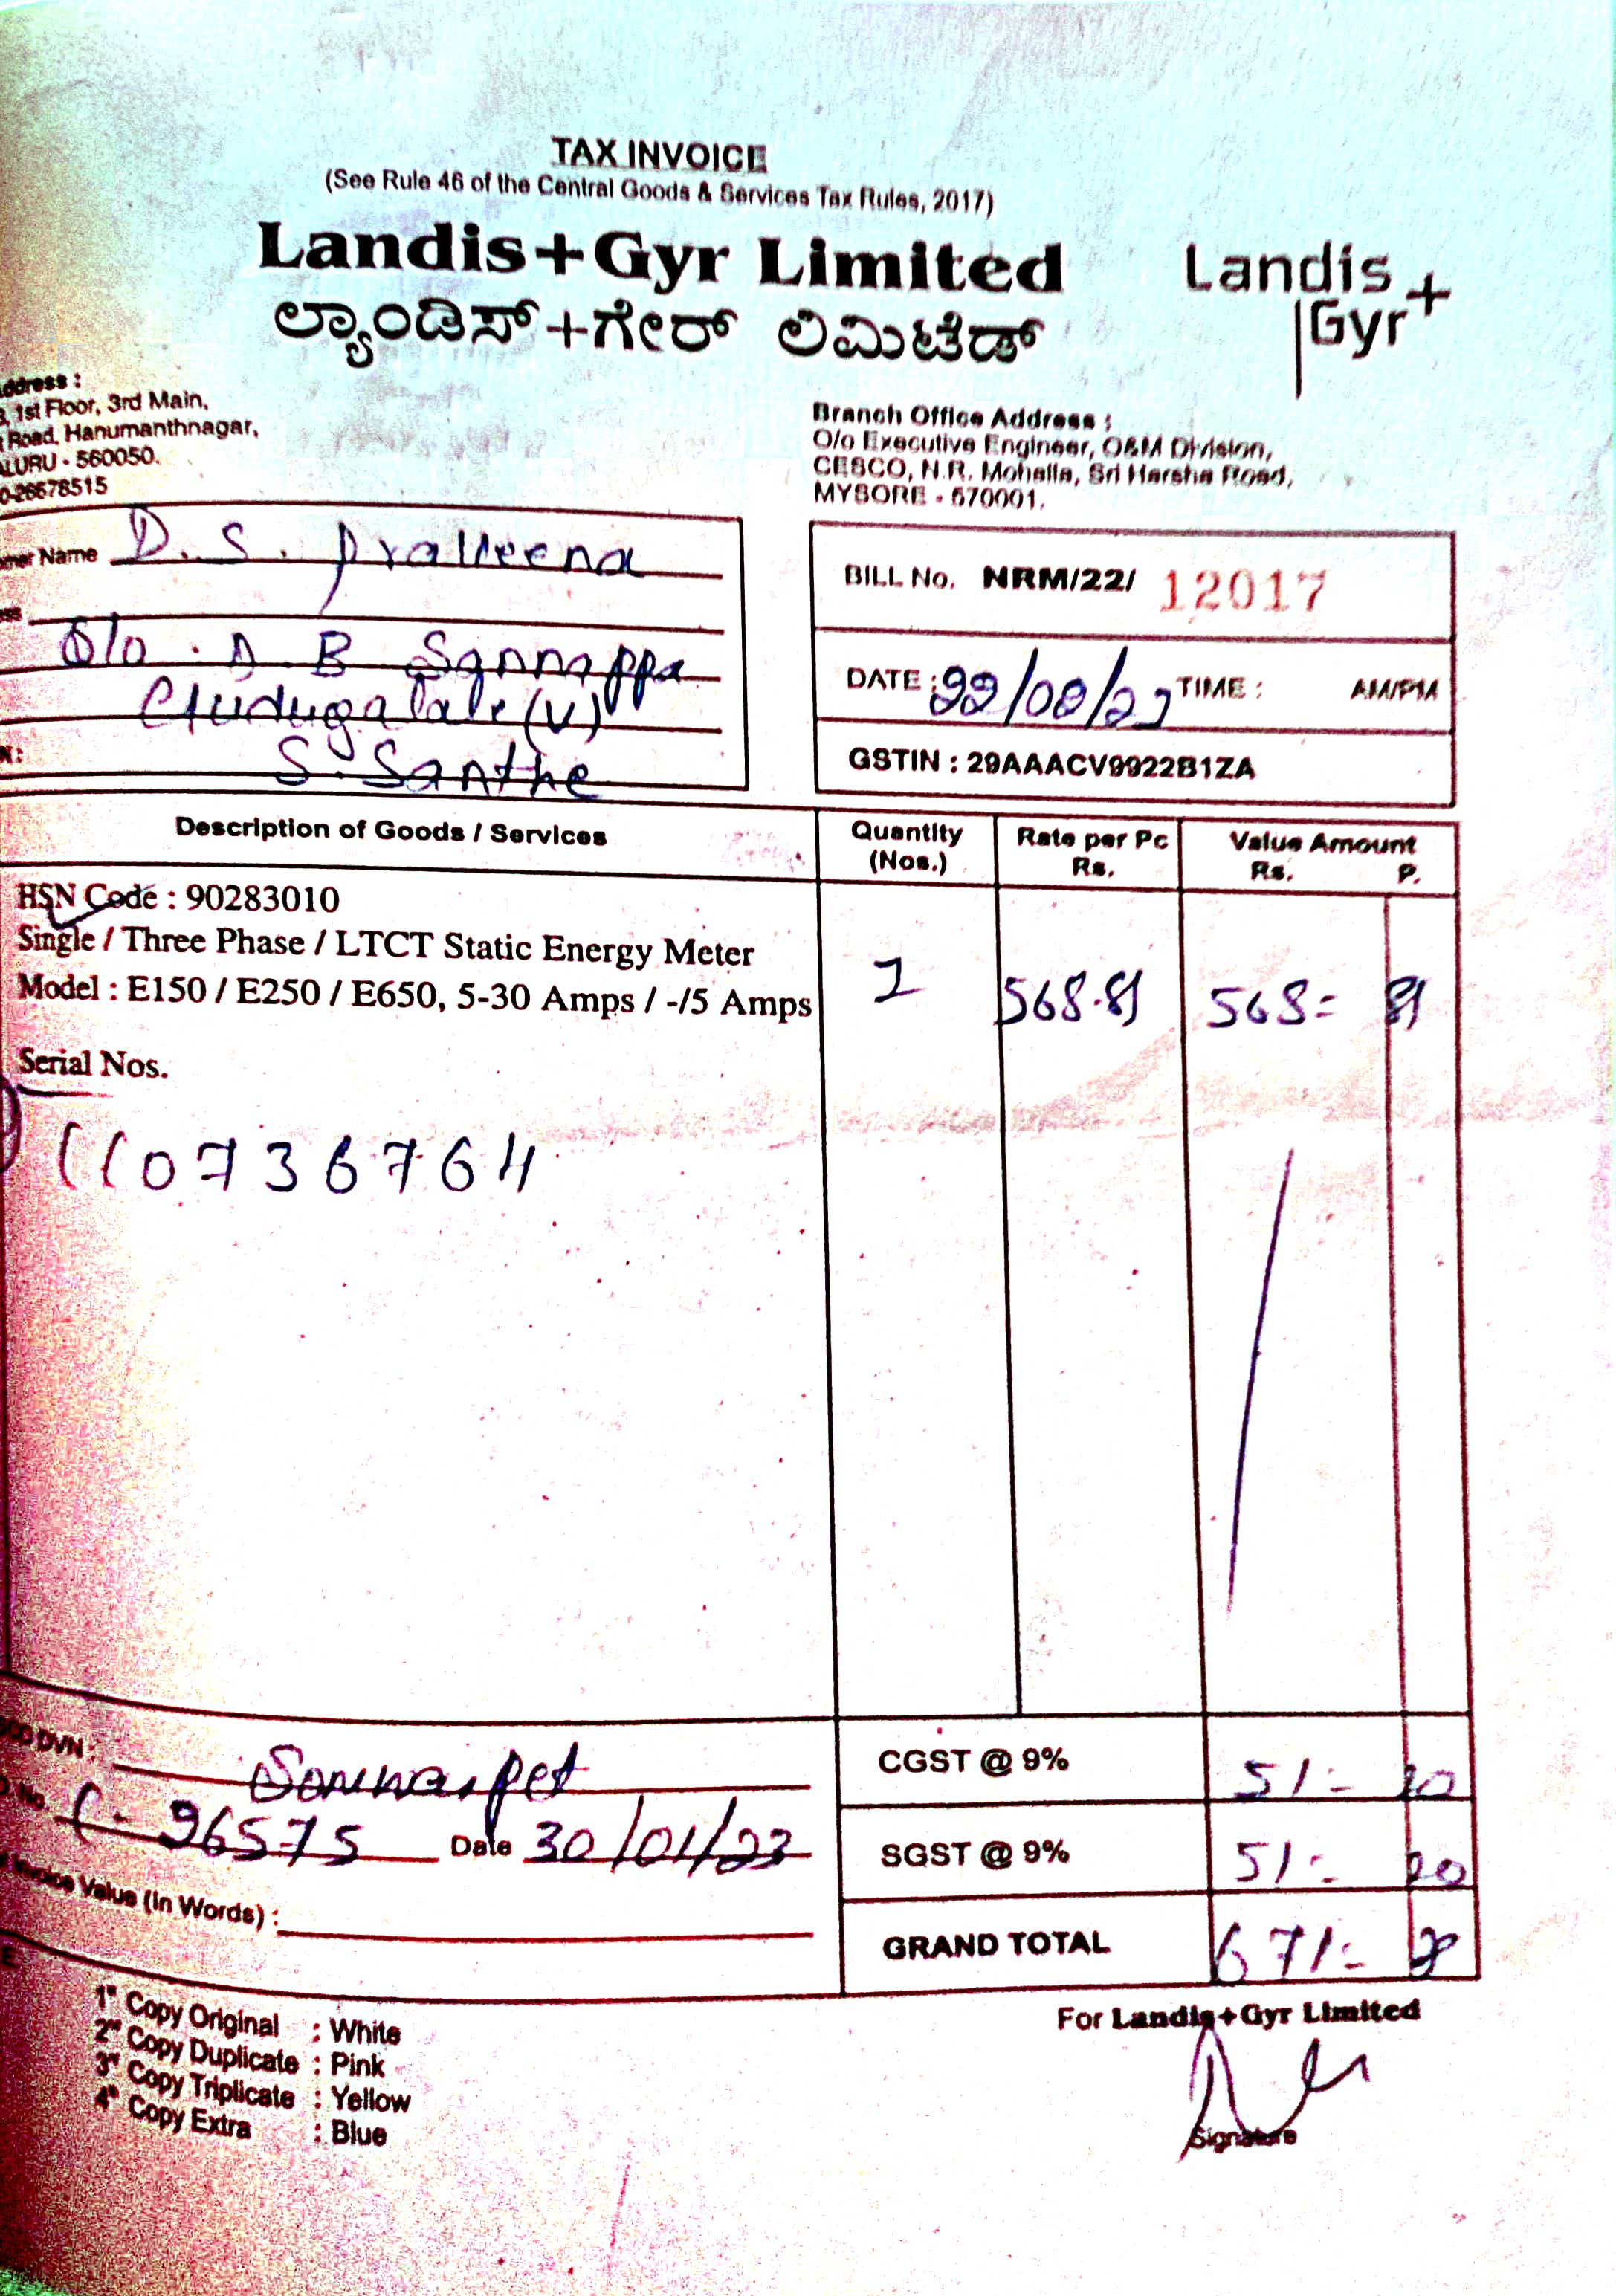 TAX INVOICE
(See Rule 46 of the Central Goods & Services Tax Rules, 2017)
Landis+Gyr Limited
ಲ್ಯಾಂಡಿಸ್+ಗೇರ್ ಲಿಮಿಟೆಡ್
Landis+
Gyr
ddress :
1st Floor, 3rd Main,
Road, Hanumanthnagar,
LURU - 560050.
0-26678515
Branch Office Address :
O/o Executive Engineer, O&M Division,
CESCO, N.R. Mohalla, Sri Harsha Road,
MYSORE - 570001.
mer Name D. S. Praveena
S/o . D. B Sannappa
(V)
S. Santhe
BILL No. NRM/22/ 12017
DATE : TIME : AM/PM
GSTIN : 29AAACV9922B1ZA
Description of Goods / Services Quantity (Nos.) Rate per Pc Rs. Value Amount Rs. P.
HSN Code : 90283010
Single / Three Phase / LTCT Static Energy Meter
Model : E150 / E250 / E650, 5-30 Amps / -/5 Amps 1 568.81 568= 81
Serial Nos.
110736764
DVN : Somwarpet
No. 96575 Date 30/01/23
Invoice Value (In Words) :
CGST @ 9% 51:- 20
SGST @ 9% 51:- 20
GRAND TOTAL 671:-
1st Copy Original : White
2nd Copy Duplicate : Pink
3rd Copy Triplicate : Yellow
4th Copy Extra : Blue
For Landis+Gyr Limited
Signature